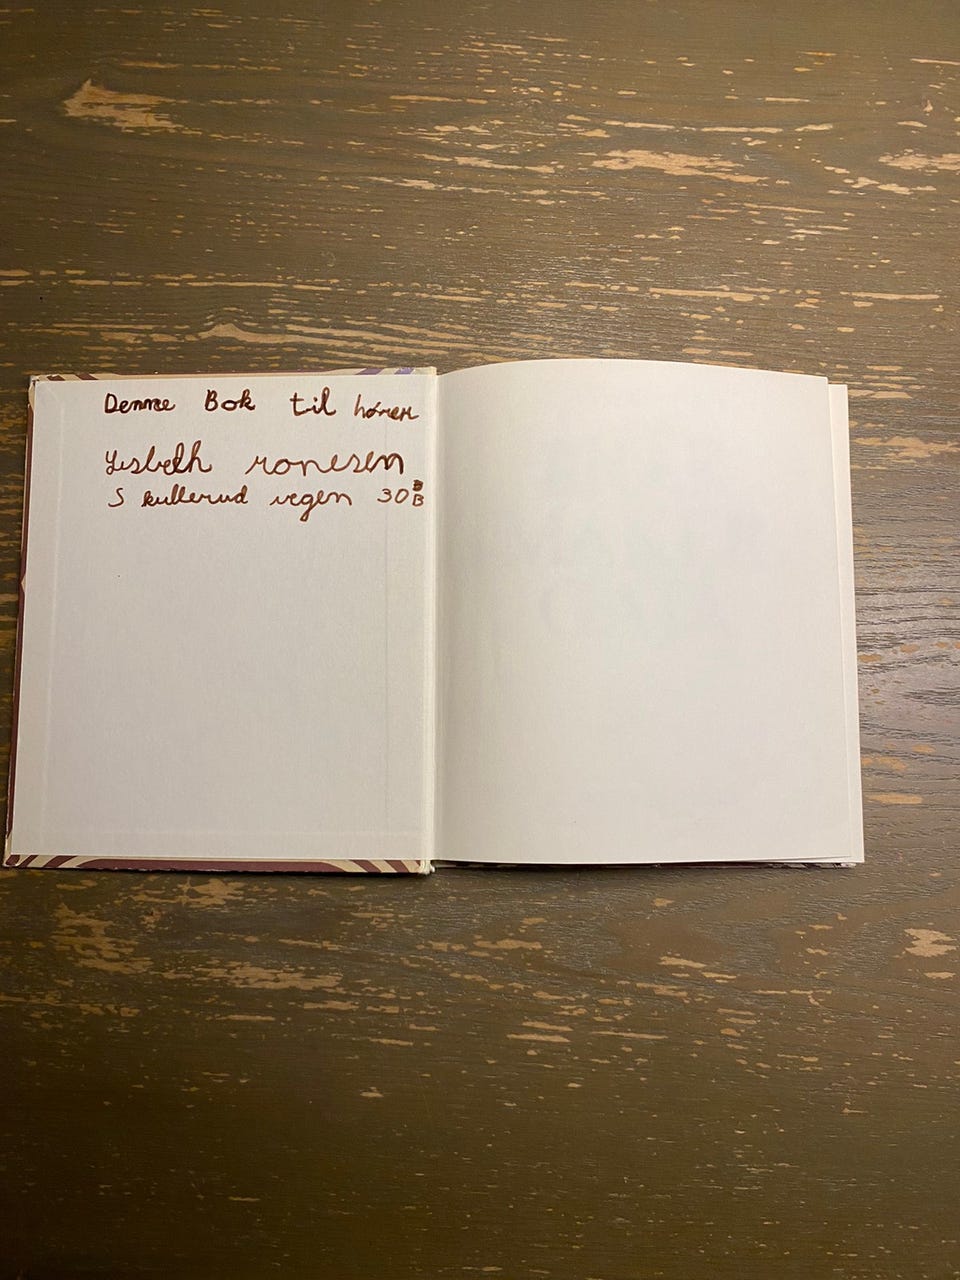 Denne Bok til hører
Lisbeth ronesen
S kullerud vegen 30 B